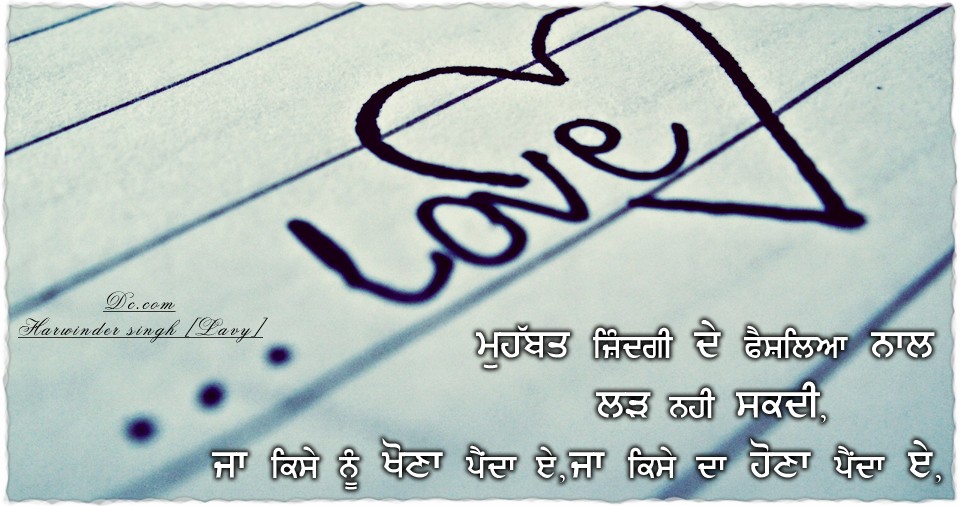 Love
Dc.com
Harwinder singh [Lavy]
ਮੁਹੱਬਤ ਜ਼ਿੰਦਗੀ ਦੇ ਫੈਸ਼ਲਿਆ ਨਾਲ
ਲੜ ਨਹੀ ਸਕਦੀ,
ਜਾ ਕਿਸੇ ਨੂੰ ਖੋਣਾ ਪੈਂਦਾ ਏ,ਜਾ ਕਿਸੇ ਦਾ ਹੋਣਾ ਪੈਂਦਾ ਏ,